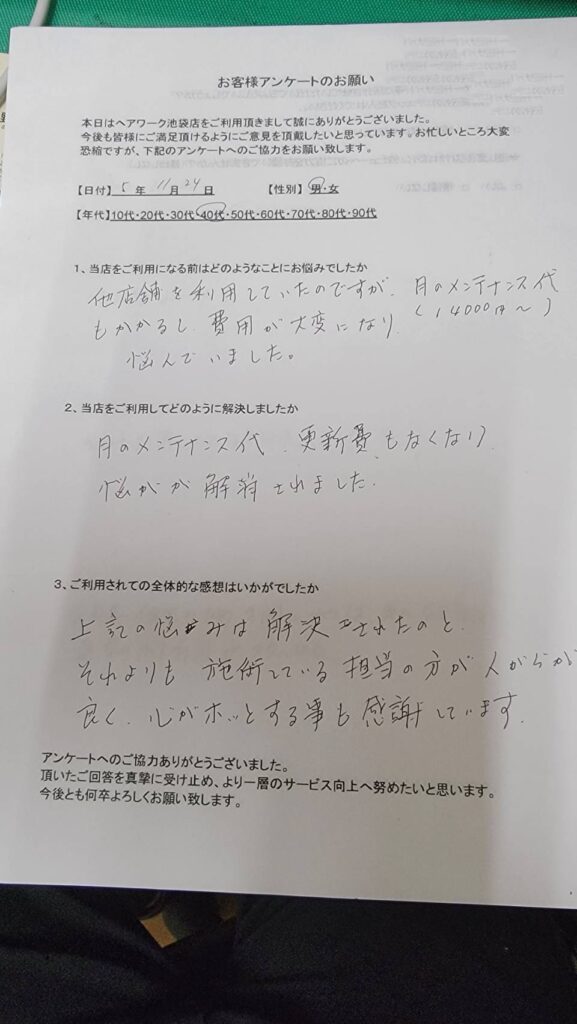 お客様アンケートのお願い
本日はヘアワーク池袋店をご利用頂きまして誠にありがとうございました。
今後も皆様にご満足頂けるようにご意見を頂戴したいと思っています。お忙しいところ大変
恐縮ですが、下記のアンケートへのご協力をお願い致します。
【日付】 5 年 11 月 24 日 【性別】 男・女
【年代】10代・20代・30代・40代・50代・60代・70代・80代・90代
1、当店をご利用になる前はどのようなことにお悩みでしたか
他店舗を利用していたのですが、月のメンテナンス代
もかかるし、費用が大変になり、(14000円~)
悩んでいました。
2、当店をご利用してどのように解決しましたか
月のメンテナンス代、更新費もなくなり、
悩みが解消されました。
3、ご利用されての全体的な感想はいかがでしたか
上記の悩みは解決されたのと、
それよりも施術している担当の方が人がらが
良く、心がホッとする事も感謝しています。
アンケートへのご協力ありがとうございました。
頂いたご回答を真摯に受け止め、より一層のサービス向上へ努めたいと思います。
今後とも何卒よろしくお願い致します。